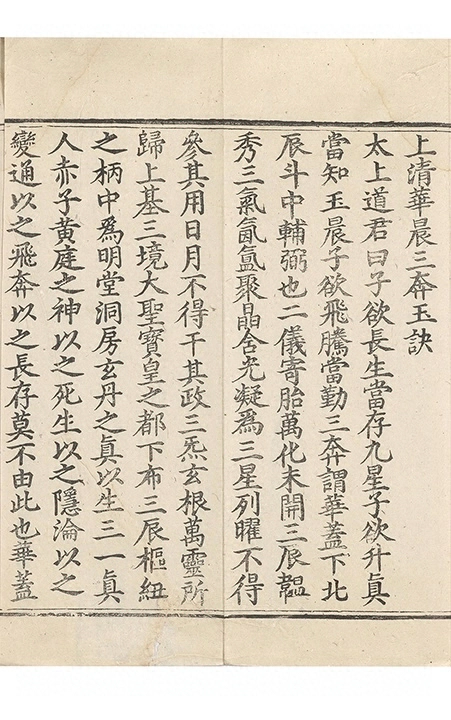 上清華晨三奔玉訣
太上道君曰子欲長生當存九星子欲升真
當知玉晨子欲飛騰當勤三奔謂華蓋下北
辰斗中輔弼也二儀寄胎萬化未開三辰韞
秀三氣氤氳聚晶含光凝為三星列曜不得
參其用日月不得干其政三炁玄根萬靈所
歸上基三境大聖寶皇之都下布三辰樞紐
之柄中為明堂洞房玄丹之真以生三一真
人赤子黃庭之神以之死生以之隱淪以之
變通以之飛奔以之長存莫不由此也華蓋